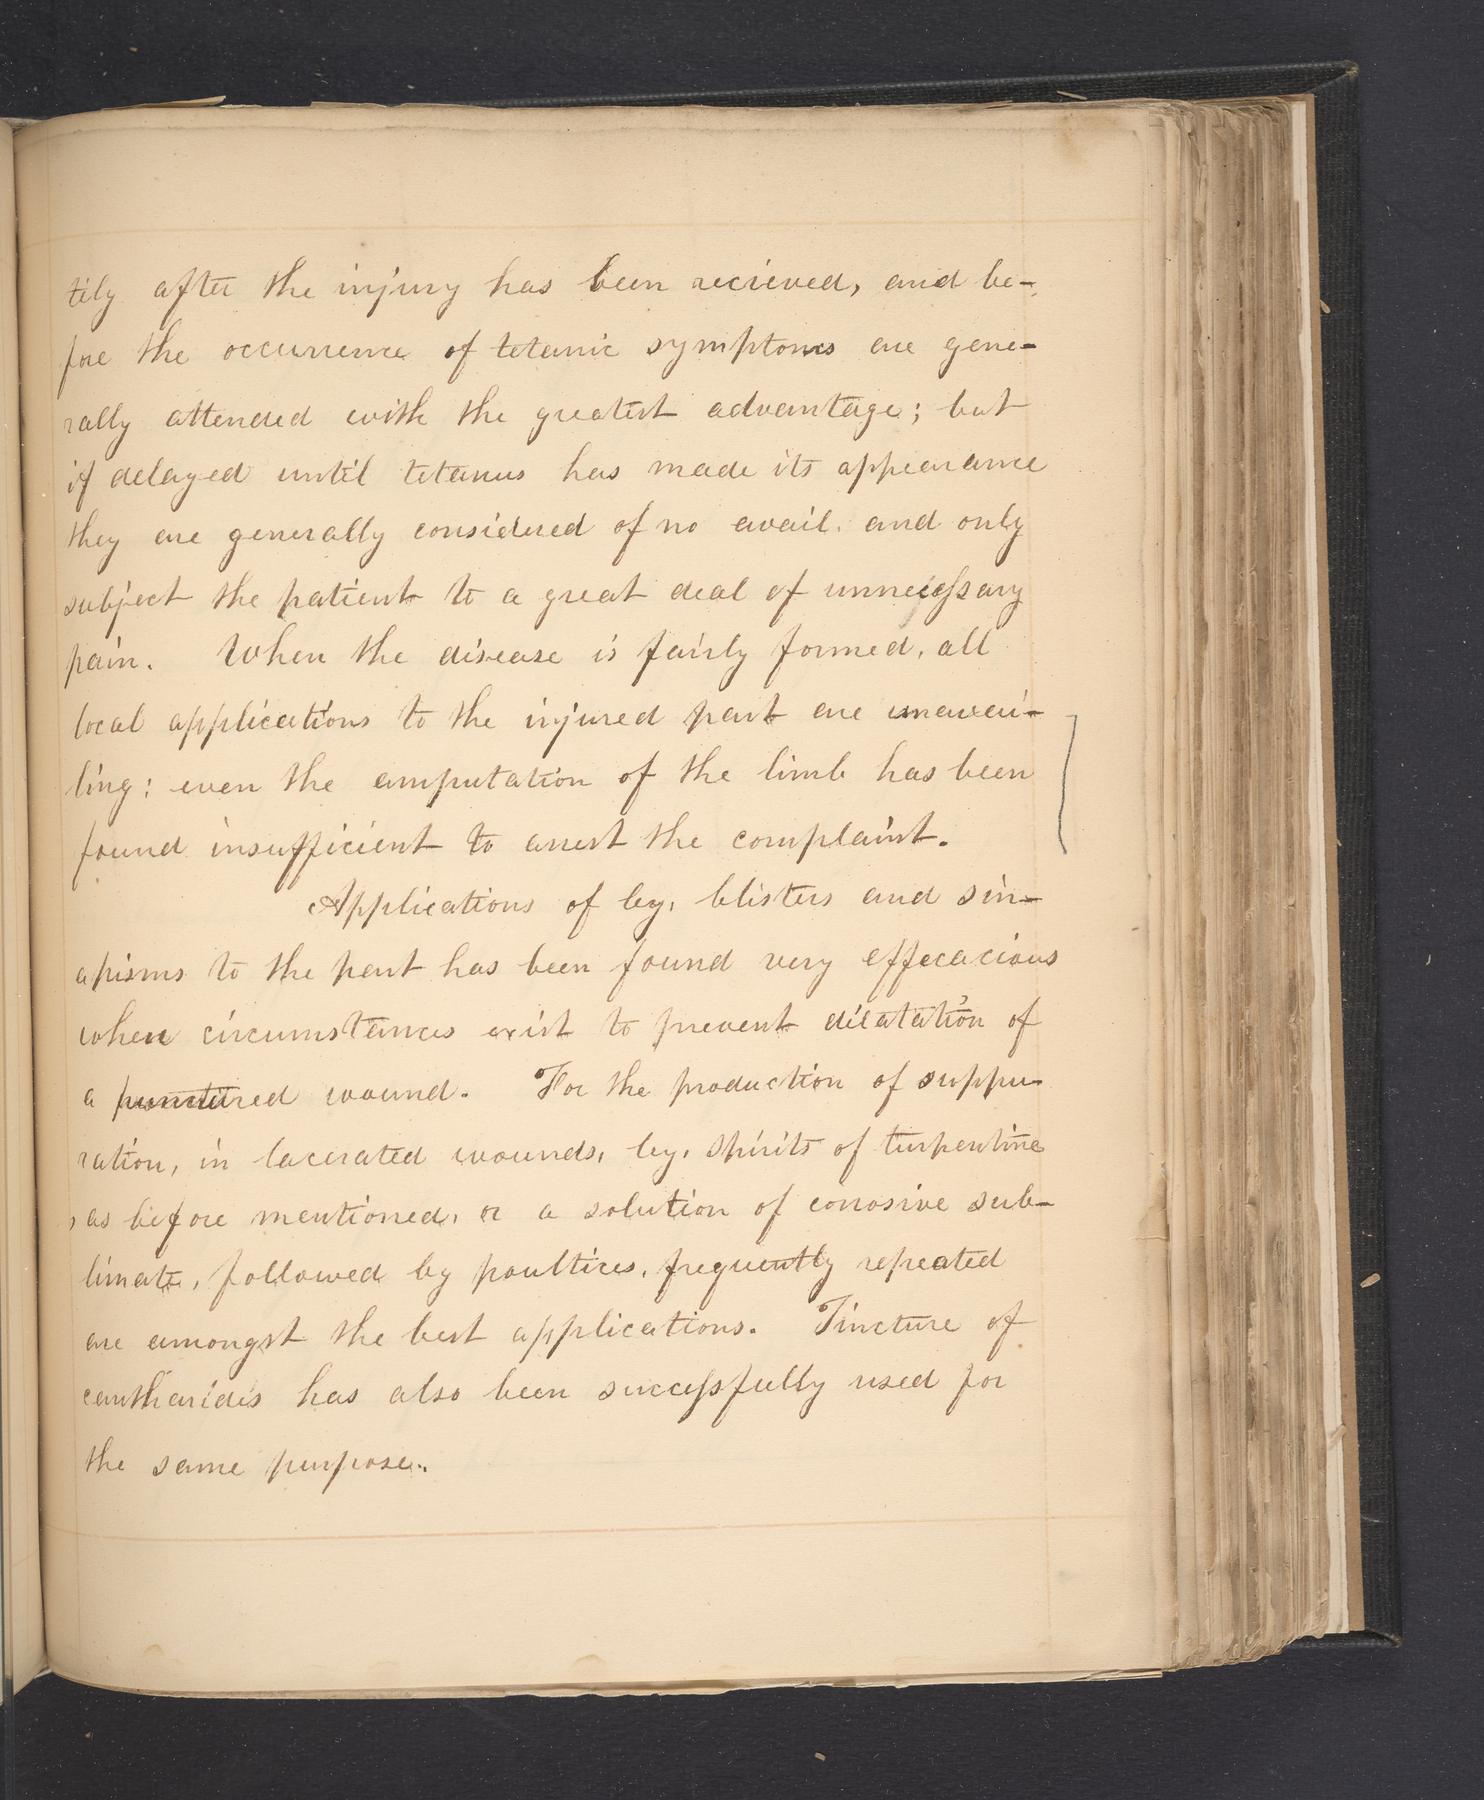 tily after the injury has been recieved, and be-
fore the occurrence of tetanic symptoms are gene-
rally attended with the greatest advantage; but
if delayed until tetanus has made its appearance
they are generally considered of no avail. and only
subject the patient to a great deal of unnecessary
pain. When the disease is fairly formed, all
local applications to the injured part are unavai-
ling; even the amputation of the limb has been
found insufficient to arrest the complaint.
Applications of ley, blisters and sin-
apisms to the part has been found very effecacious
when circumstances exist to prevent dilatation of
a punctured wound. For the production of suppu-
ration, in lacerated wounds, ley, spirits of turpentine
, as before mentioned, or a solution of corrosive sub-
limate, followed by poultices, frequently repeated
are amongst the best applications. Tincture of
cantharides has also been successfully used for
the same purpose.